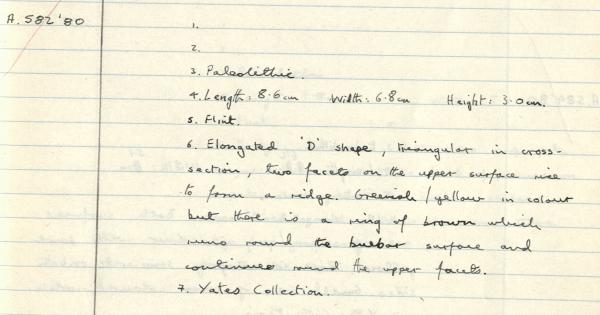 A.582'80
1.
2.
3. Paleolithic.
4. Length: 8.6cm Width: 6.8cm Height: 3.0cm.
5. Flint.
6. Elongated 'D' shape, triangular in cross-
section, two facets on the upper surface rise
to form a ridge. Greenish/yellow in colour
but there is a ring of brown which
runs round the bulbar surface and
continues round the upper facets.
7. Yates Collection.